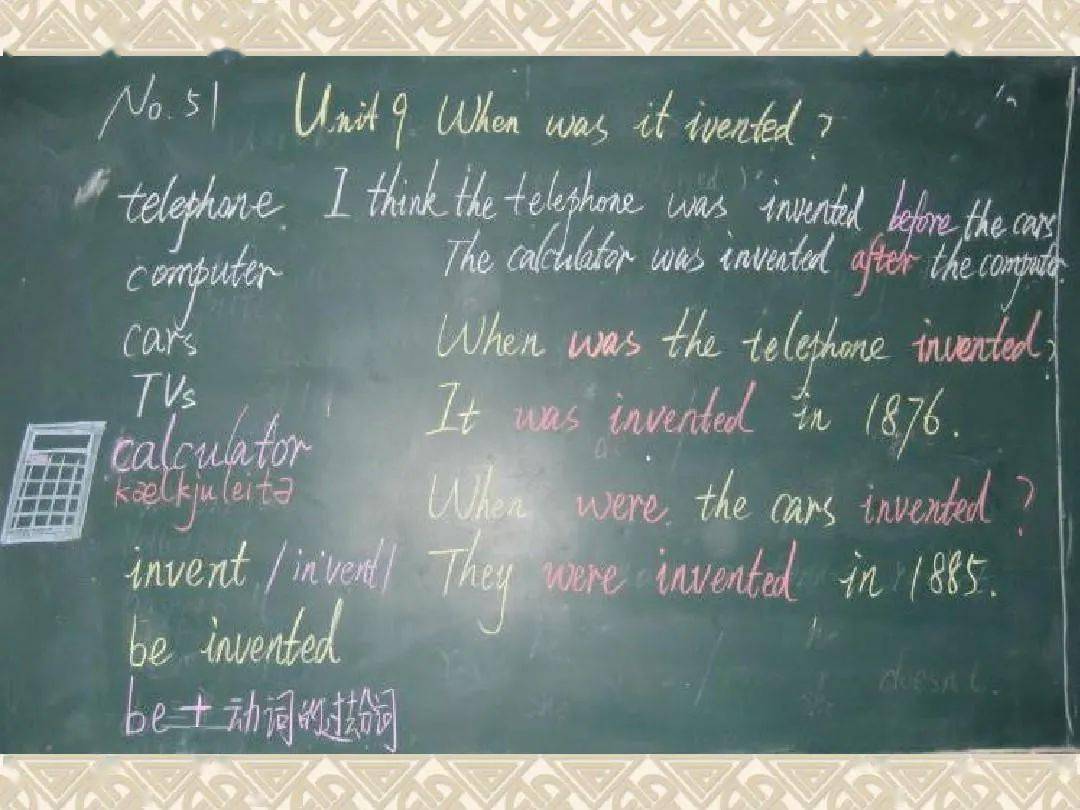 No. 51 Unit 9 When was it ivented ?
telephone I think the telephone was invented before the cars
computer The calculator was invented after the computer.
cars When was the telephone invented ?
TVs It was invented in 1876.
calculator
kælkjuleitə
When were the cars invented ?
invent /invent/ They were invented in 1885.
be invented
be + 动词的过去分词